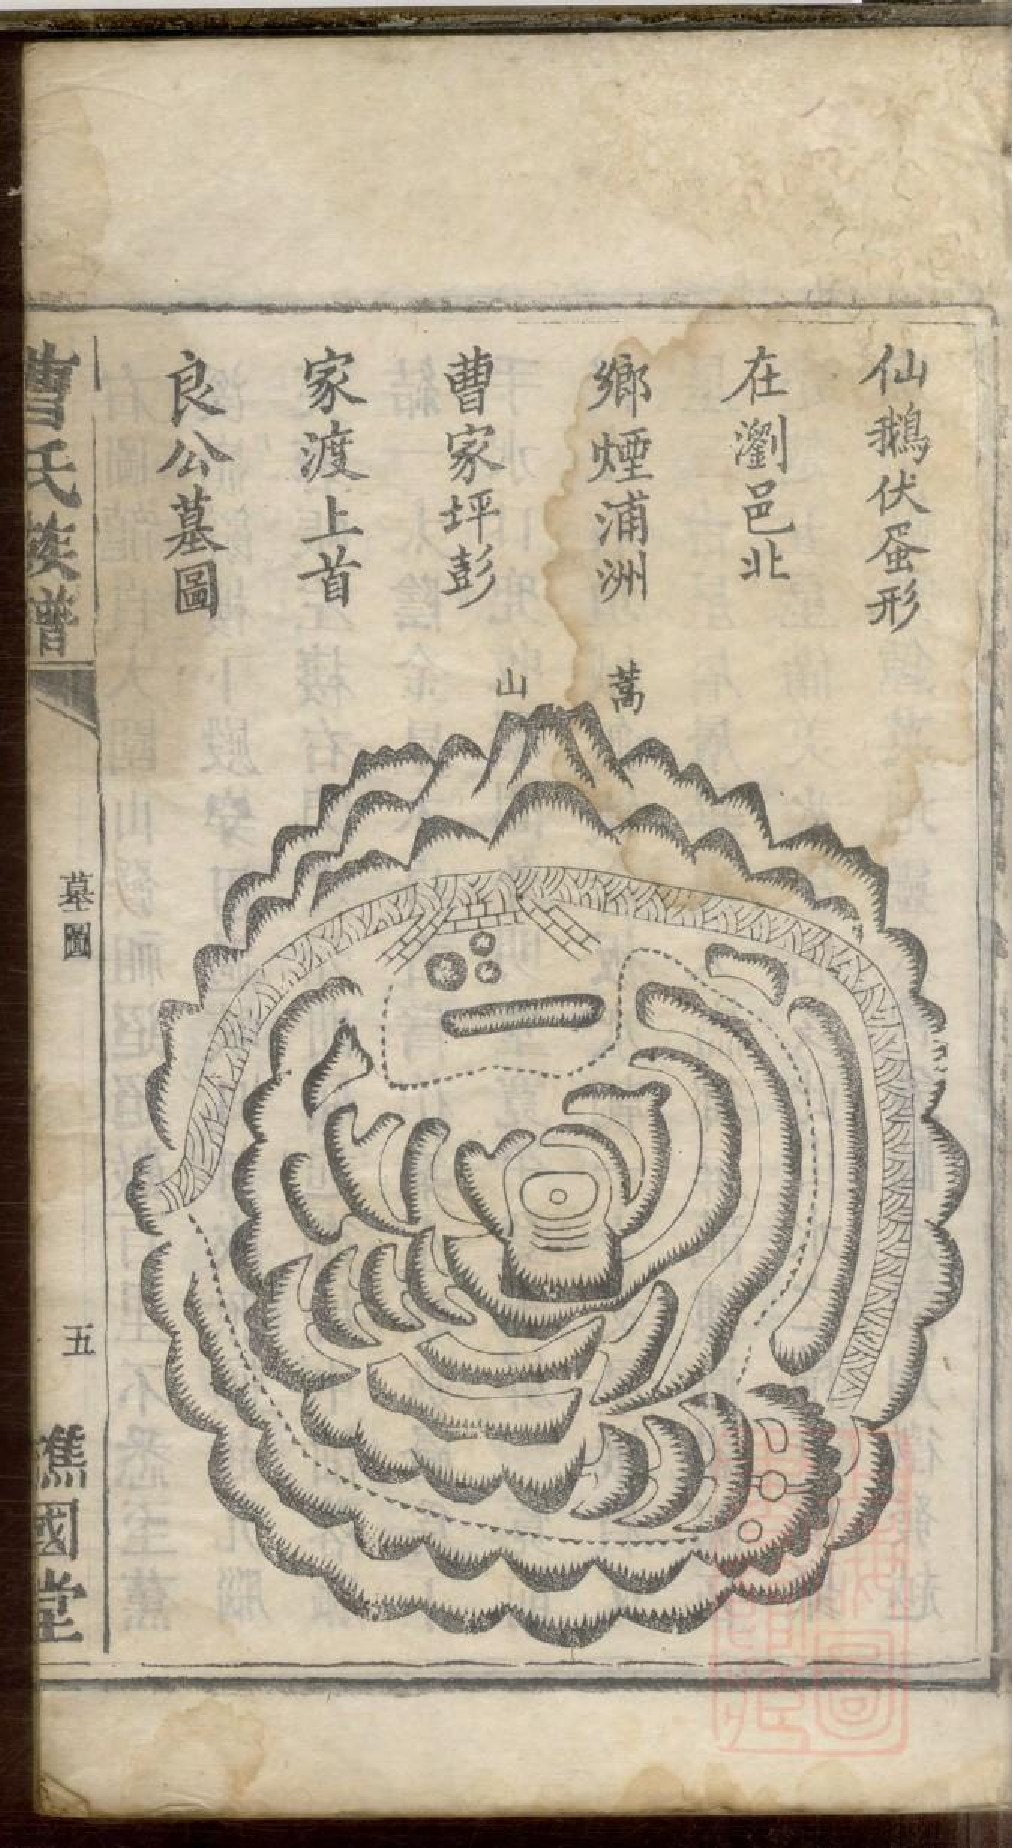 仙鵝伏蛋形
在瀏邑北
鄉煙浦洲
曹家坪彭
家渡上首
良公墓圖
蒿山
曹氏族譜
墓圖
五
譙國堂